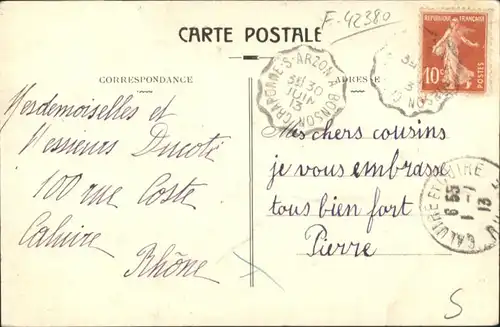 F-42380
CARTE POSTALE
CORRESPONDANCE
ADRESSE
CRAPONNE-S-ARZON A BONSON
3E 30
JUIN
13
REPUBLIQUE FRANÇAISE
10c
POSTES
Mesdemoiselles et
Messieurs Ducoté
100 rue Coste
Caluire
Rhône
Mes chers cousins
je vous embrasse
tous bien fort
Pierre
CALUIRE ET CUIRE
6 55
1 - 7
13
S